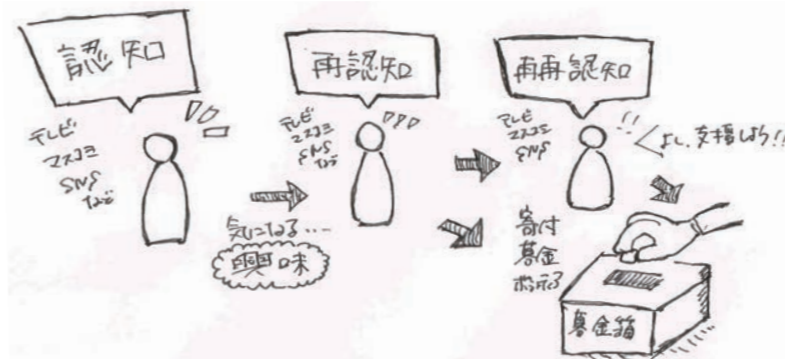 認知
テレビ
マスコミ
SNS
など
気になる....
興味
再認知
テレビ
マスコミ
SNS
など
再再認知
テレビ
マスコミ
SNS
!!
よし、支援しよう!!
寄付
募金
ボラティア
募金箱